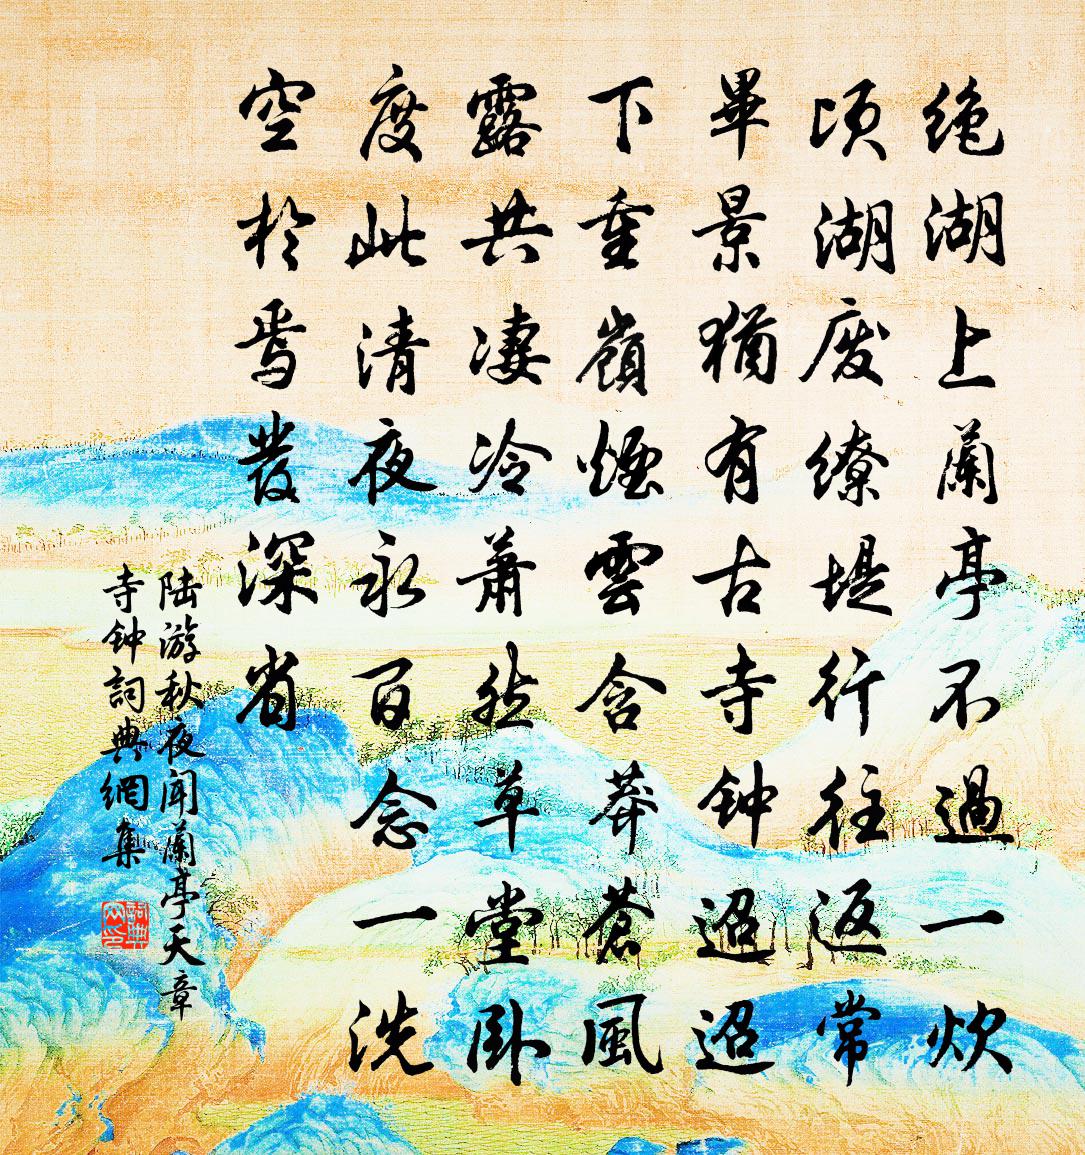 绝湖上蘭亭不過一炊
顷湖废繚堤行往返常
畢景猶有古寺钟迢迢
下重嶺煙雲含莽蒼風
露共凄冷蕭然草堂臥
度此清夜永百念一洗
空於焉發深省
陆游秋夜聞蘭亭天章
寺钟詞典網集